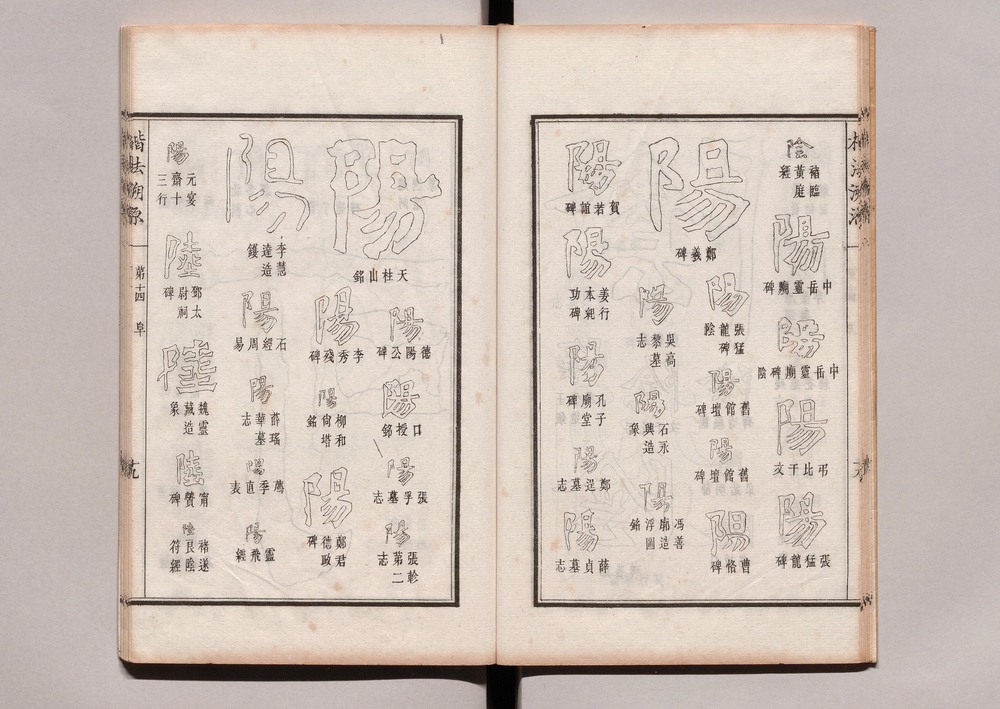 陰
褚臨黃庭經
陽
中岳靈廟碑
陽
中岳靈廟碑陰
陽
弔比干文
陽
張猛龍碑
陽
鄭羲碑
陽
張猛龍碑陰
陽
舊館壇碑
陽
舊館壇碑
陽
曹恪碑
陽
吳高黎墓志
陽
石永興造象
陽
馮善廓造浮圖銘
陽
賀若誼碑
陽
姜行本紀功碑
陽
孔子廟堂碑
陽
鄭逞墓志
陽
薛貞墓志
陽
天柱山銘
陽
德陽公碑
陽
口授銘
陽
張孚墓志
陽
張軫第二志
陽
李秀殘碑
陽
柳尚和塔銘
陽
鄭君德政碑
陽
李慧達造鐫
陽
石經周易
陽
薛瑤華墓志
陽
薦季直表
陽
靈飛經
陽
元宴齋十三行
陸
鄧太尉祠碑
陸
魏靈藏造象
陸
甯贙碑
陸
褚遂良陰符經
楷法溯源
第十四
阜